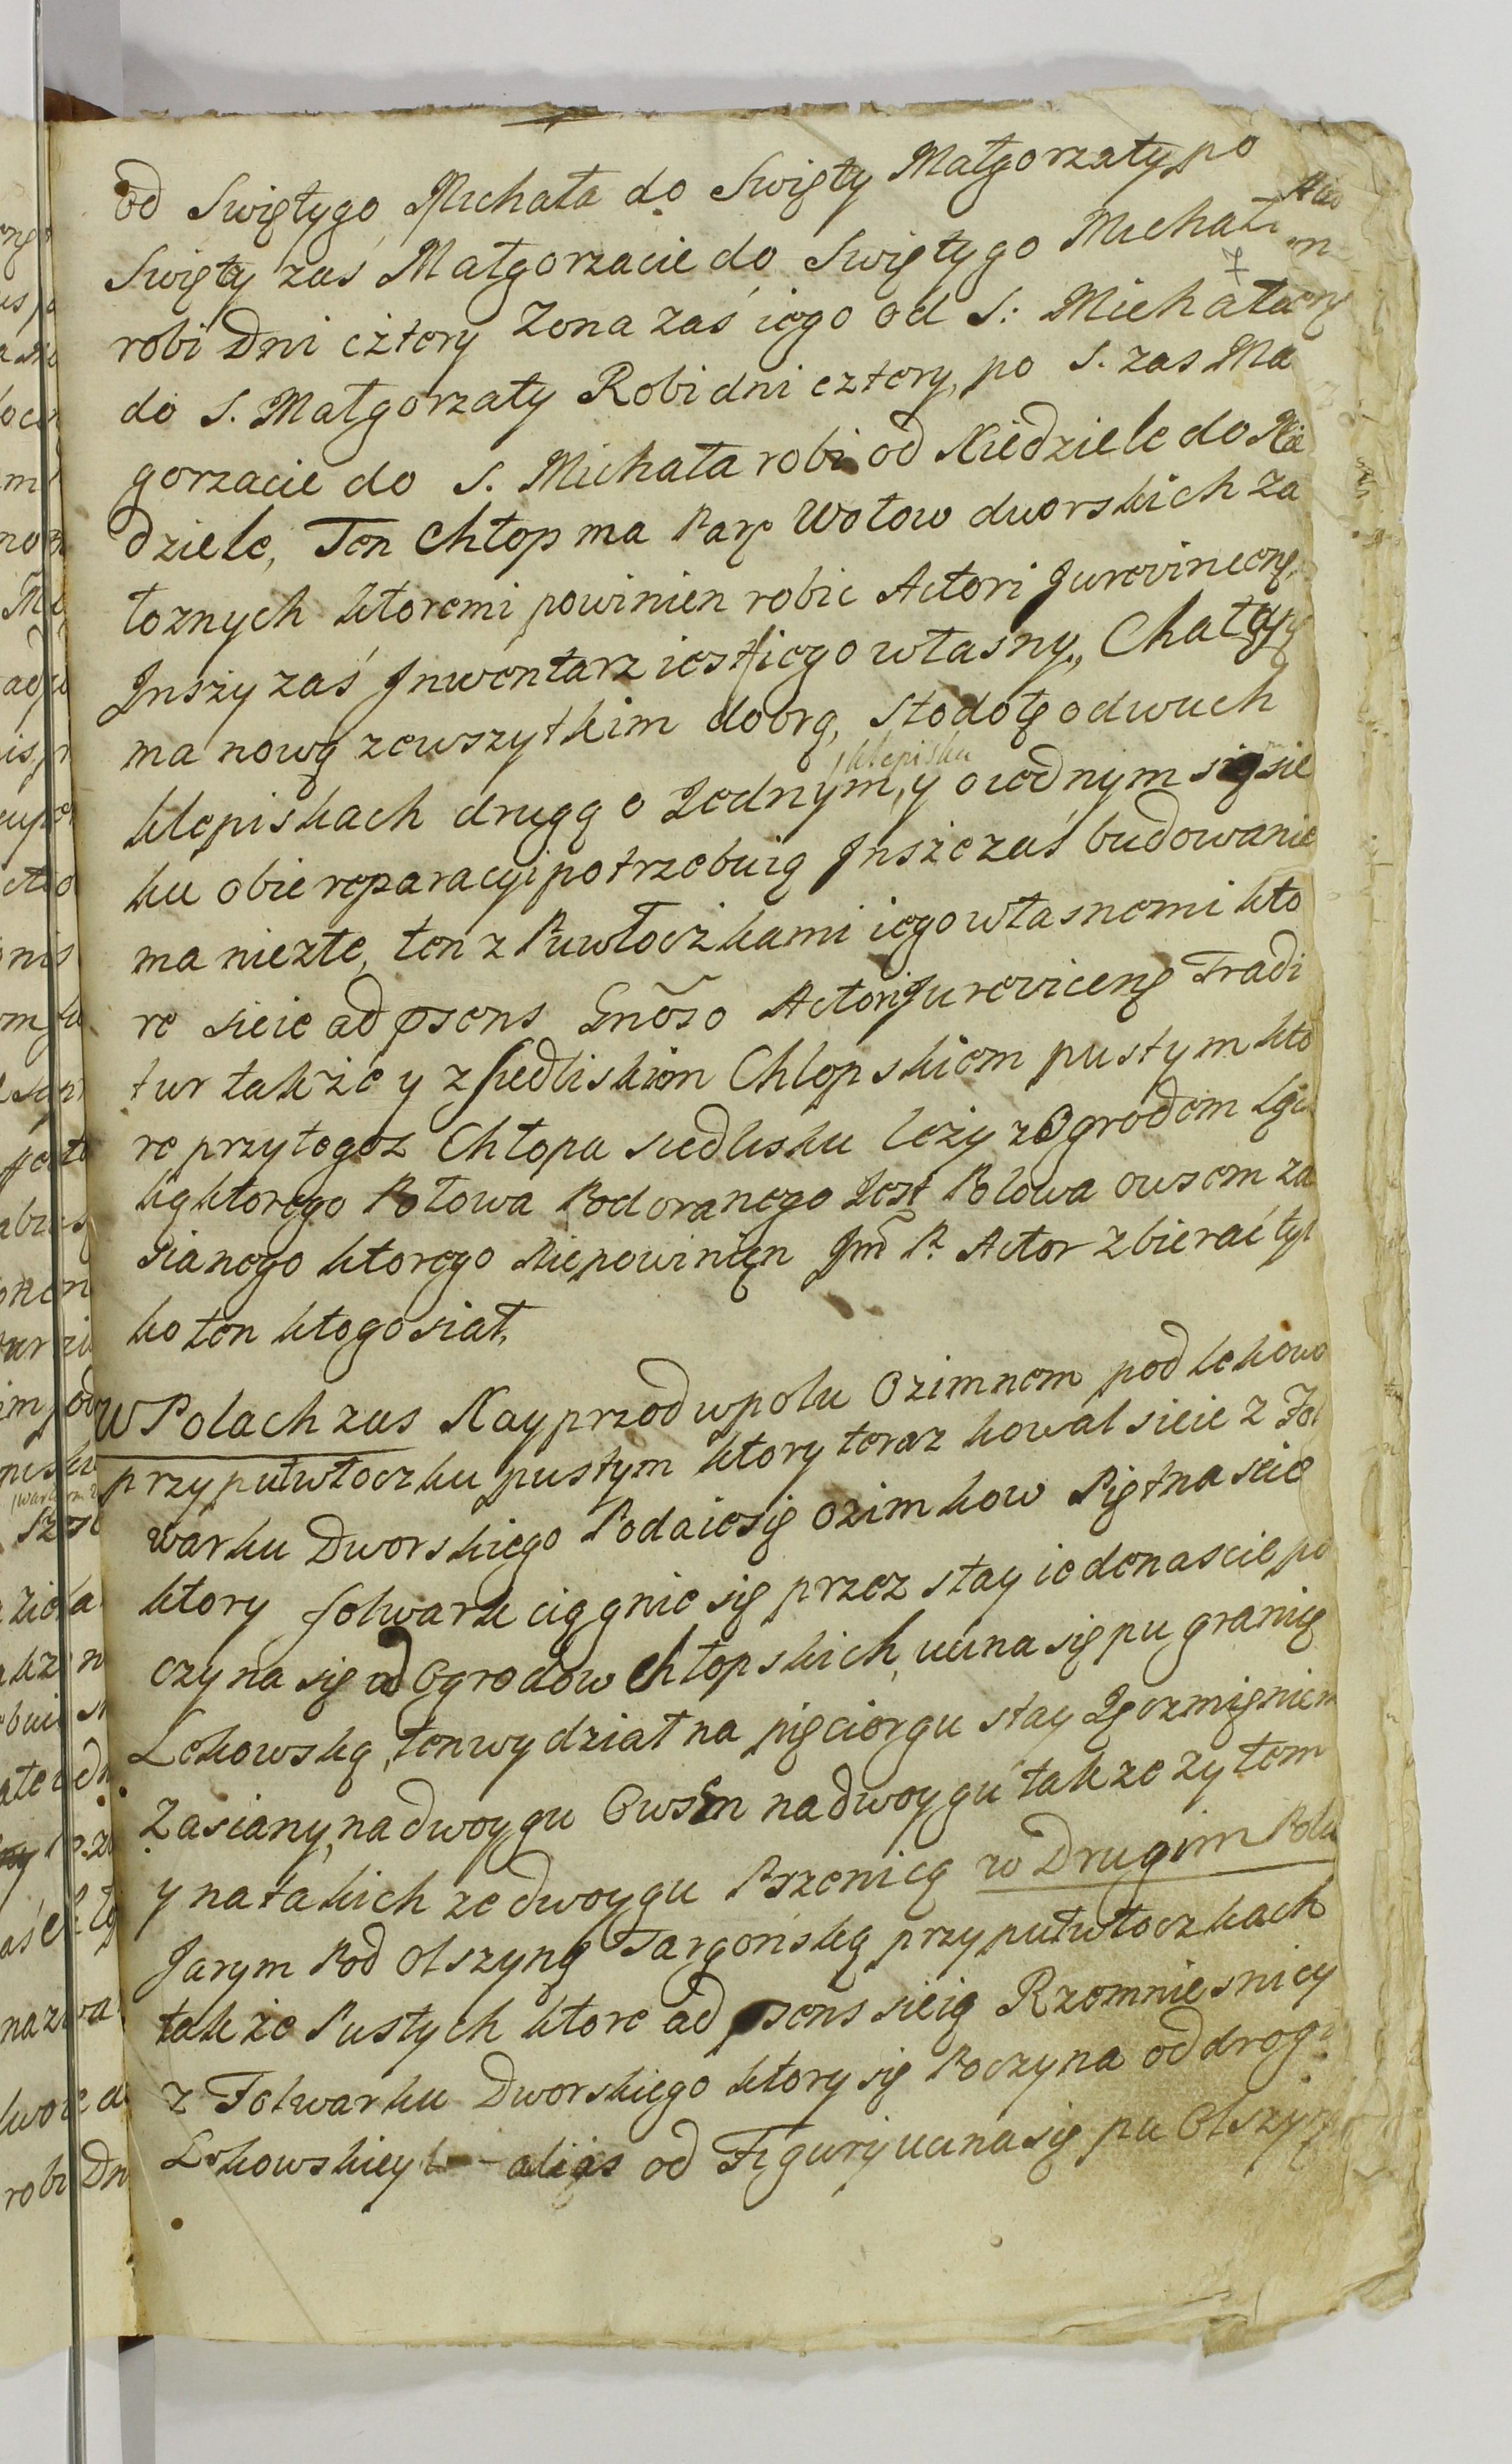 od Swiętygo Michała do Swięty Małgorzaty, po
Swięty zaś Małgorzacie do Swiętygo Michała
robi Dni cztery Zona zaś iego od S: Michała
do S. Małgorzaty Robi dni cztery, po S. zas Ma
gorzacie do S. Michała robi od Niedziele do Nie
dziele, Ten Chłop ma Parę Wołow dworskich za
łoznych ktoremi powinien robic Actori Jurevinceñ,
Inszy zaś Inwentarz iest iego własny, Chałupę
ma nową zewszytkim dobrą, Stodołę odwuch
klepisku
klepiskach drugą o Jednym, y o iednym sięsie
ku obie reparacyi potrzebuią Insze zaś budowanie
ma niezłe, ten z Puwłoczkami iego własnemi kto
re sieie ad psens Gnoso Actori Jureviceñ Tradi
tur także y z siedliskiem Chlopskiem pustym kto
re przytegoz Chłopa siedlisku leży z Ogrodem
ktorego Połowa Podoranego Jest Polowa owsem za
sianego ktorego Niepowinien Jm P. Actor zbierać tyl
ko ten ktogo siał,
W Polach zas Nayprzod wpolu Ozimnem pod lekowo
przy pułwłoczku pustym ktory teraz kowal sieie z Fol
warku Dworskiego Podaiesię ozimkow Piętnascie
ktory folwark ciągnie się przez stay iedenascie po
czyna się od Ogrodow Chłopskich, ucina się pu granicę
Lekowską, ten wydział na pięciorgu stay Jęczmięniem
Zasiany, nadwoygu Owsem nadwoygu takze zytem
y natakich ze dwoygu Pszenicą w Drugim Polu
Jarym Pod Olszyną Targońską przy pułwłoczkach
także Pustych ktore ad psens sieią Rzemniesnicy
z Folwarku Dworskiego ktory się Poczyna od drogi
Lekowskiey alias od Figury ucina się pu Olszynę